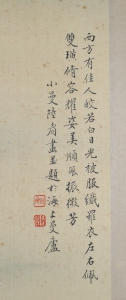 西方有佳人皎若白日光被服纖羅衣左右佩
雙璜脩容耀姿美順風振微芳
小曼陸眉畫並題於海上曼廬